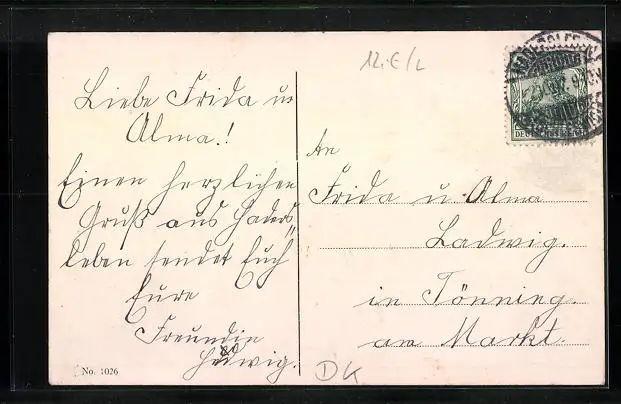 Liebe Frida u
Alma.!
Einen herzlichen
Gruß aus Haders
leben sendet Euch
Eure
Freundin
Hedwig.
No. 1026
12.E/L
DEUTSCHES REICH
An
Frida u. Alma
Ladwig.
in Tönning.
am Markt.
DK